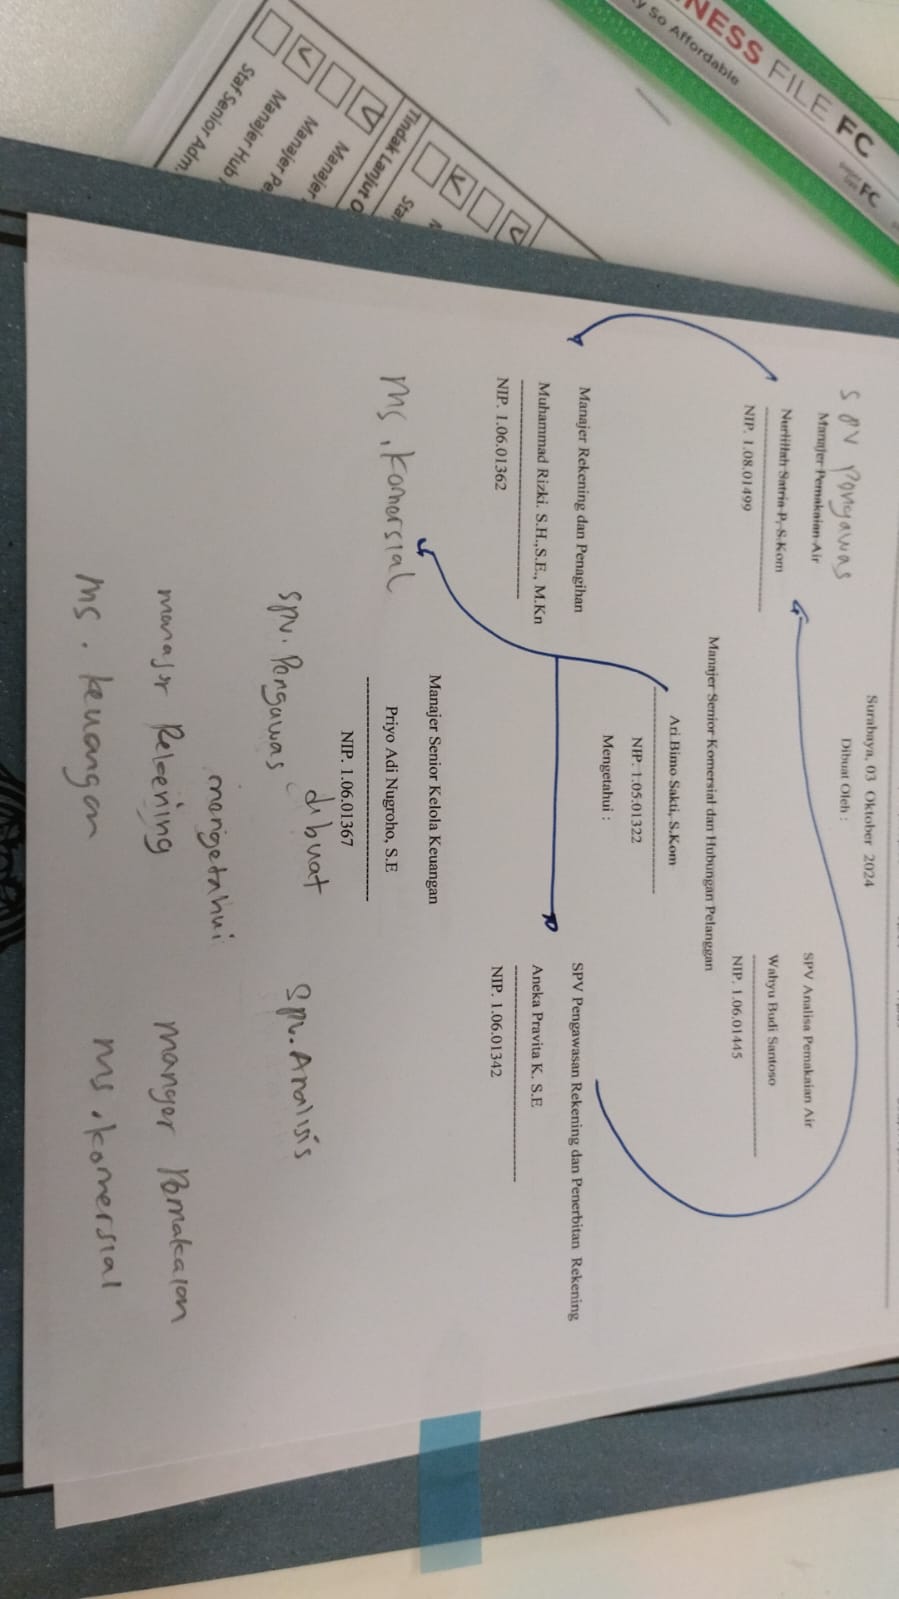 NESS FILE FC
y So Affordable
FC
Tindak Lanjut O
Sta
Manajer
Manajer Pe
Manajer Hub
Staf Senior Adm.
Surabaya, 03 Oktober 2024
Dibuat Oleh :
SPV Pengawas
Manajer Pemakaian Air
Nurlillah Satria P, S.Kom
NIP. 1.08.01499
SPV Analisa Pemakaian Air
Wahyu Budi Santoso
NIP. 1.06.01445
Manajer Senior Komersial dan Hubungan Pelanggan
Ari Bimo Sakti, S.Kom
NIP. 1.05.01322
Mengetahui :
Manajer Rekening dan Penagihan
Muhammad Rizki. S.H.,S.E., M.Kn
NIP. 1.06.01362
SPV Pengawasan Rekening dan Penerbitan Rekening
Aneka Pravita K. S.E
NIP. 1.06.01342
Ms. Komersial
Manajer Senior Kelola Keuangan
Priyo Adi Nugroho, S.E
NIP. 1.06.01367
dibuat
Spv. Pengawas
Spv. Analisis
mengetahui
manajer Rekening
manger Pemakaian
Ms. keuangan
Ms. komersial